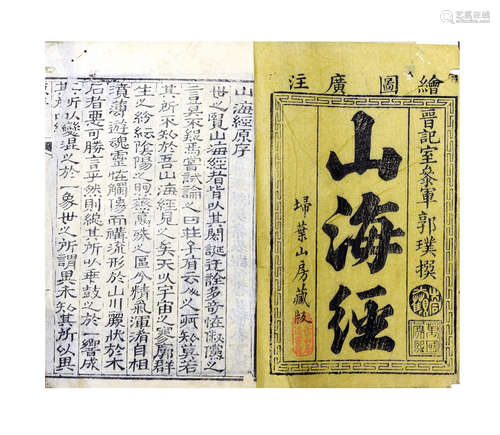 繪圖廣注
晉記室參軍 郭璞撰
山海經
掃葉山房藏版
山海經原序
世之覽山海經者皆以其閎誕迂誇多奇怪俶儻之
言莫不疑焉嘗試論之曰莊生有云人之所知莫若
其所不知於吾山海經見之矣夫以宇宙之寥廓群
生之紛紜陰陽之煦蒸萬殊之區分精氣渾淆自相
濆薄遊魂靈怪觸像而構流形於山川麗狀於木
石者惡可勝言乎然則總其所以乖鼓之於一響成
其所以變混之於一象世之所謂異未知其所以異
艺狐在线
artfoxlive.com